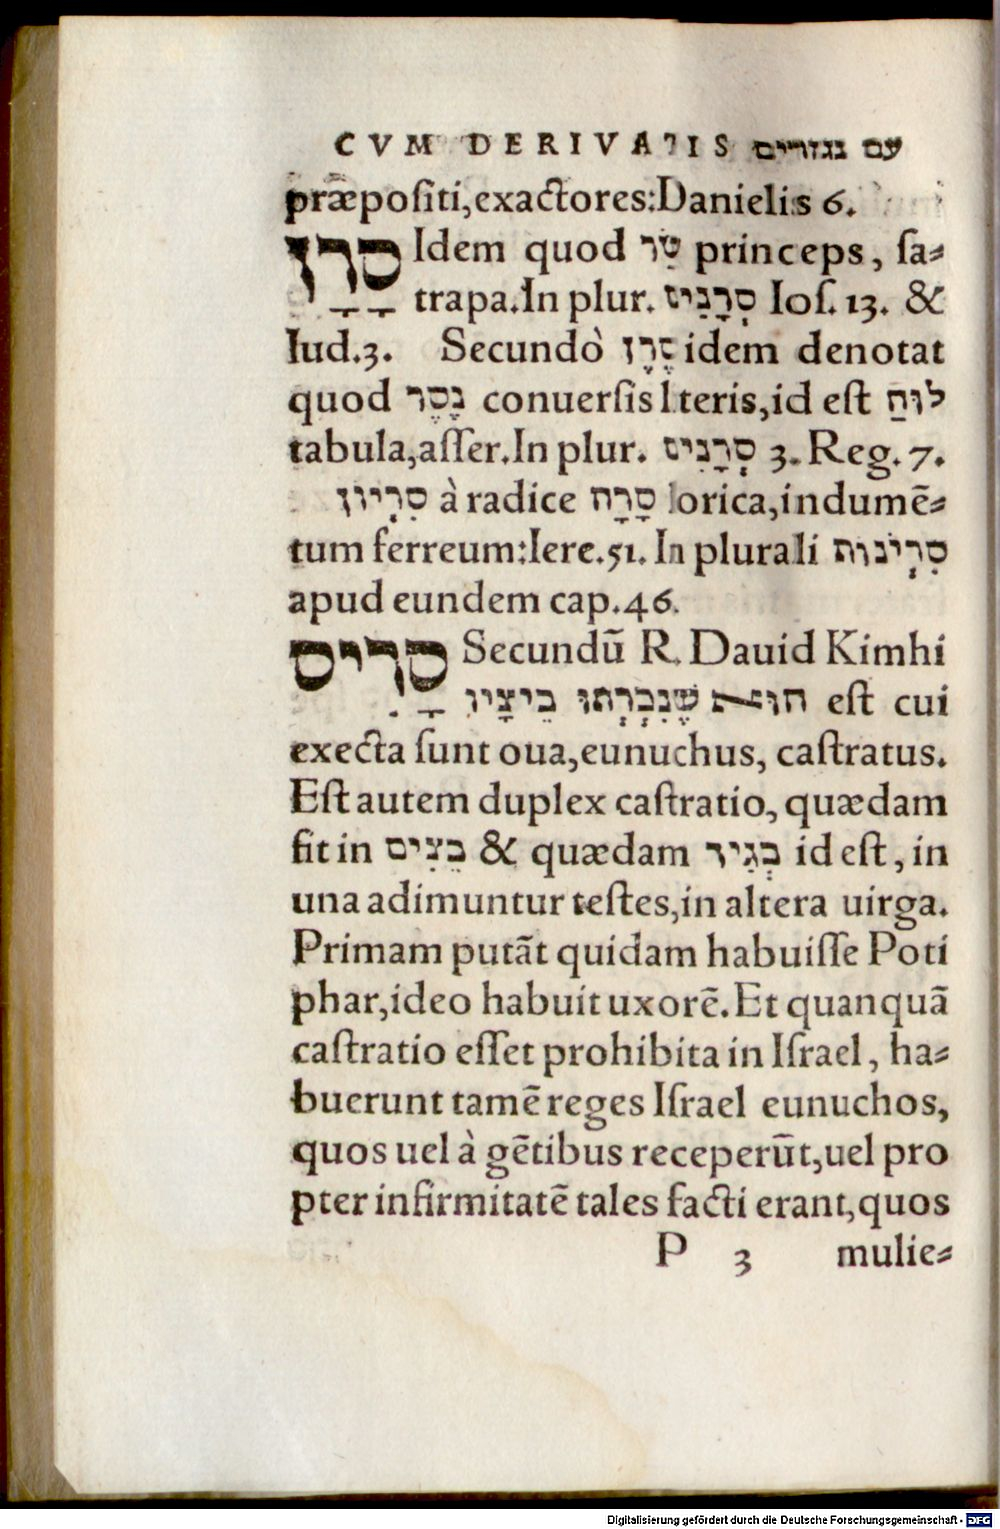 CVM DERIVATIS עם נגזרים
præpositi,exactores:Danielis 6.
סָרַן Idem quod שַׂר princeps, ſa⸗
trapa.In plur. סְרָנִים Ioſ. 13. &
Iud.3. Secundò סֶרֶן idem denotat
quod נֶסֶר conuerſis lteris,id eſt לוּחַ
tabula,aſſer.In plur. סְרָנִים 3. Reg. 7.
סִרְיוֹן à radice סָרָה lorica,indumē⸗
tum ferreum:Iere.51. In plurali סִרְיֹנוֹת
apud eundem cap.46.
סָרִיס Secundū R. Dauid Kimhi
הוּא שֶׁנִּכְרְתוּ בֵיצָיו eſt cui
execta ſunt oua,eunuchus, caſtratus.
Eſt autem duplex caſtratio, quædam
fit in בֵּצִים & quædam בְּגִיד id eſt, in
una adimuntur teſtes,in altera uirga.
Primam putāt quidam habuiſſe Poti
phar,ideo habuit uxorē. Et quanquā
caſtratio eſſet prohibita in Iſrael, ha⸗
buerunt tamē reges Iſrael eunuchos,
quos uel à gētibus receperūt,uel pro
pter infirmitatē tales facti erant,quos
P 3 mulie⸗
Digitalisierung gefördert durch die Deutsche Forschungsgemeinschaft - DFG